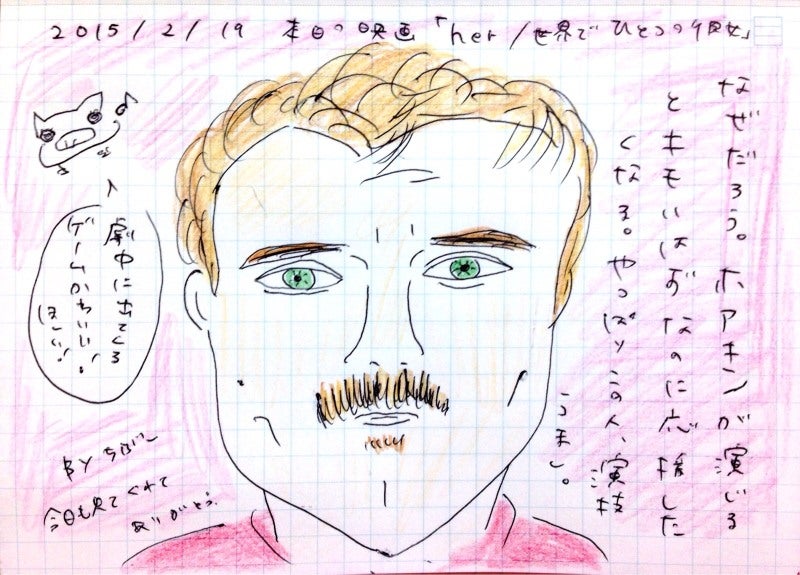 2015/2/19 本日の映画「her/世界でひとつの彼女」
なぜだろう。ホアキンが演じる
とキモいはずなのに応援した
くなる。やっぱりこの人、演技
うまし。
劇中に出てくる
ゲームかわいい!
ほしい!
BY
今日も見てくれて
ありがとう。